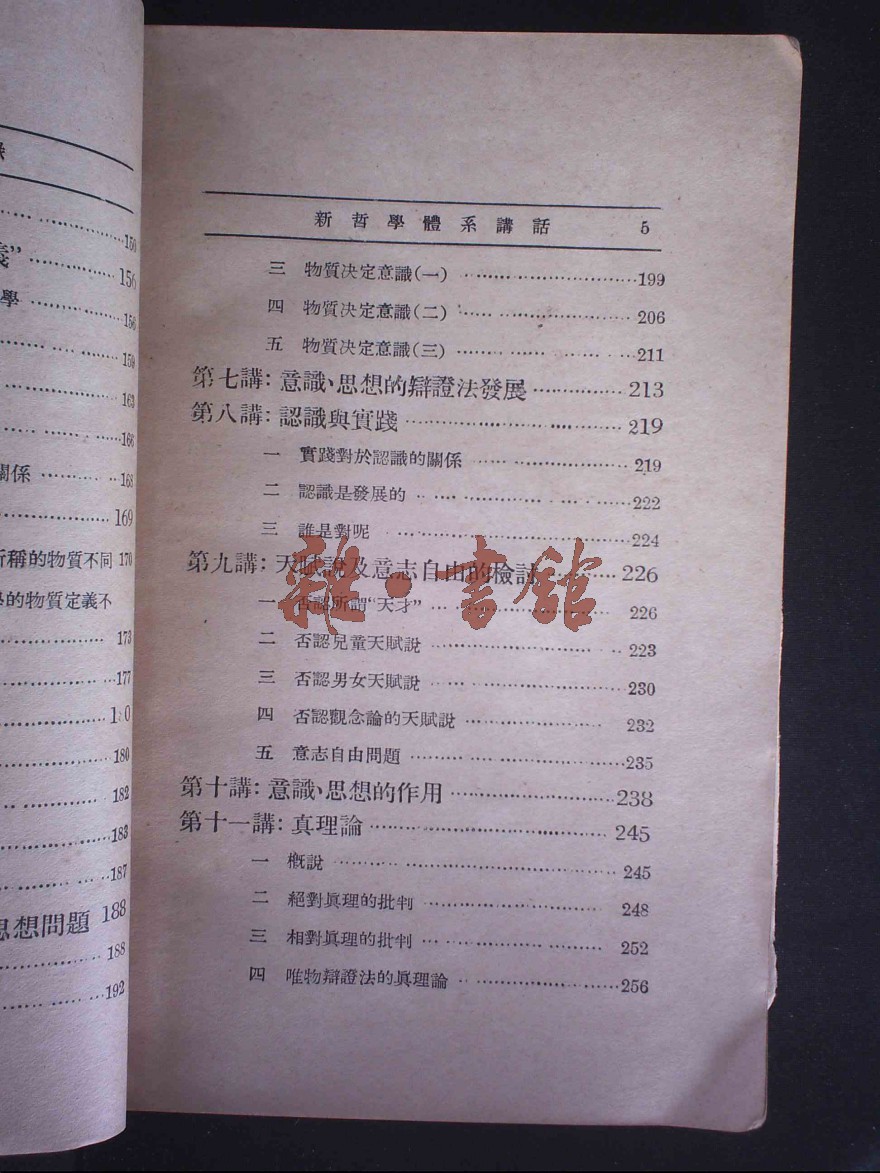 150
義” 156
學 156
159
163
166
關係 168
169
所稱的物质不同 170
的物質定義不
173
177
180
182
183
187
思想問題 188
188
192
新哲學體系講話 5
三 物質决定意識(一) 199
四 物質决定意識(二) 206
五 物質决定意識(三) 211
第七講:意識、思想的辯證法發展 213
第八講:認識與實踐 219
一 實踐對於認識的關係 219
二 認識是發展的 222
三 誰是對呢 224
第九講:天賦說及意志自由的檢討 226
一 否認所謂“天才” 226
二 否認兒童天賦說 223
三 否認男女天賦說 230
四 否認觀念論的天賦說 232
五 意志自由問題 235
第十講:意識、思想的作用 238
第十一講:真理論 245
一 概說 245
二 絕對眞理的批判 248
三 相對眞理的批判 252
四 唯物辯證法的眞理論 256
雜·書館